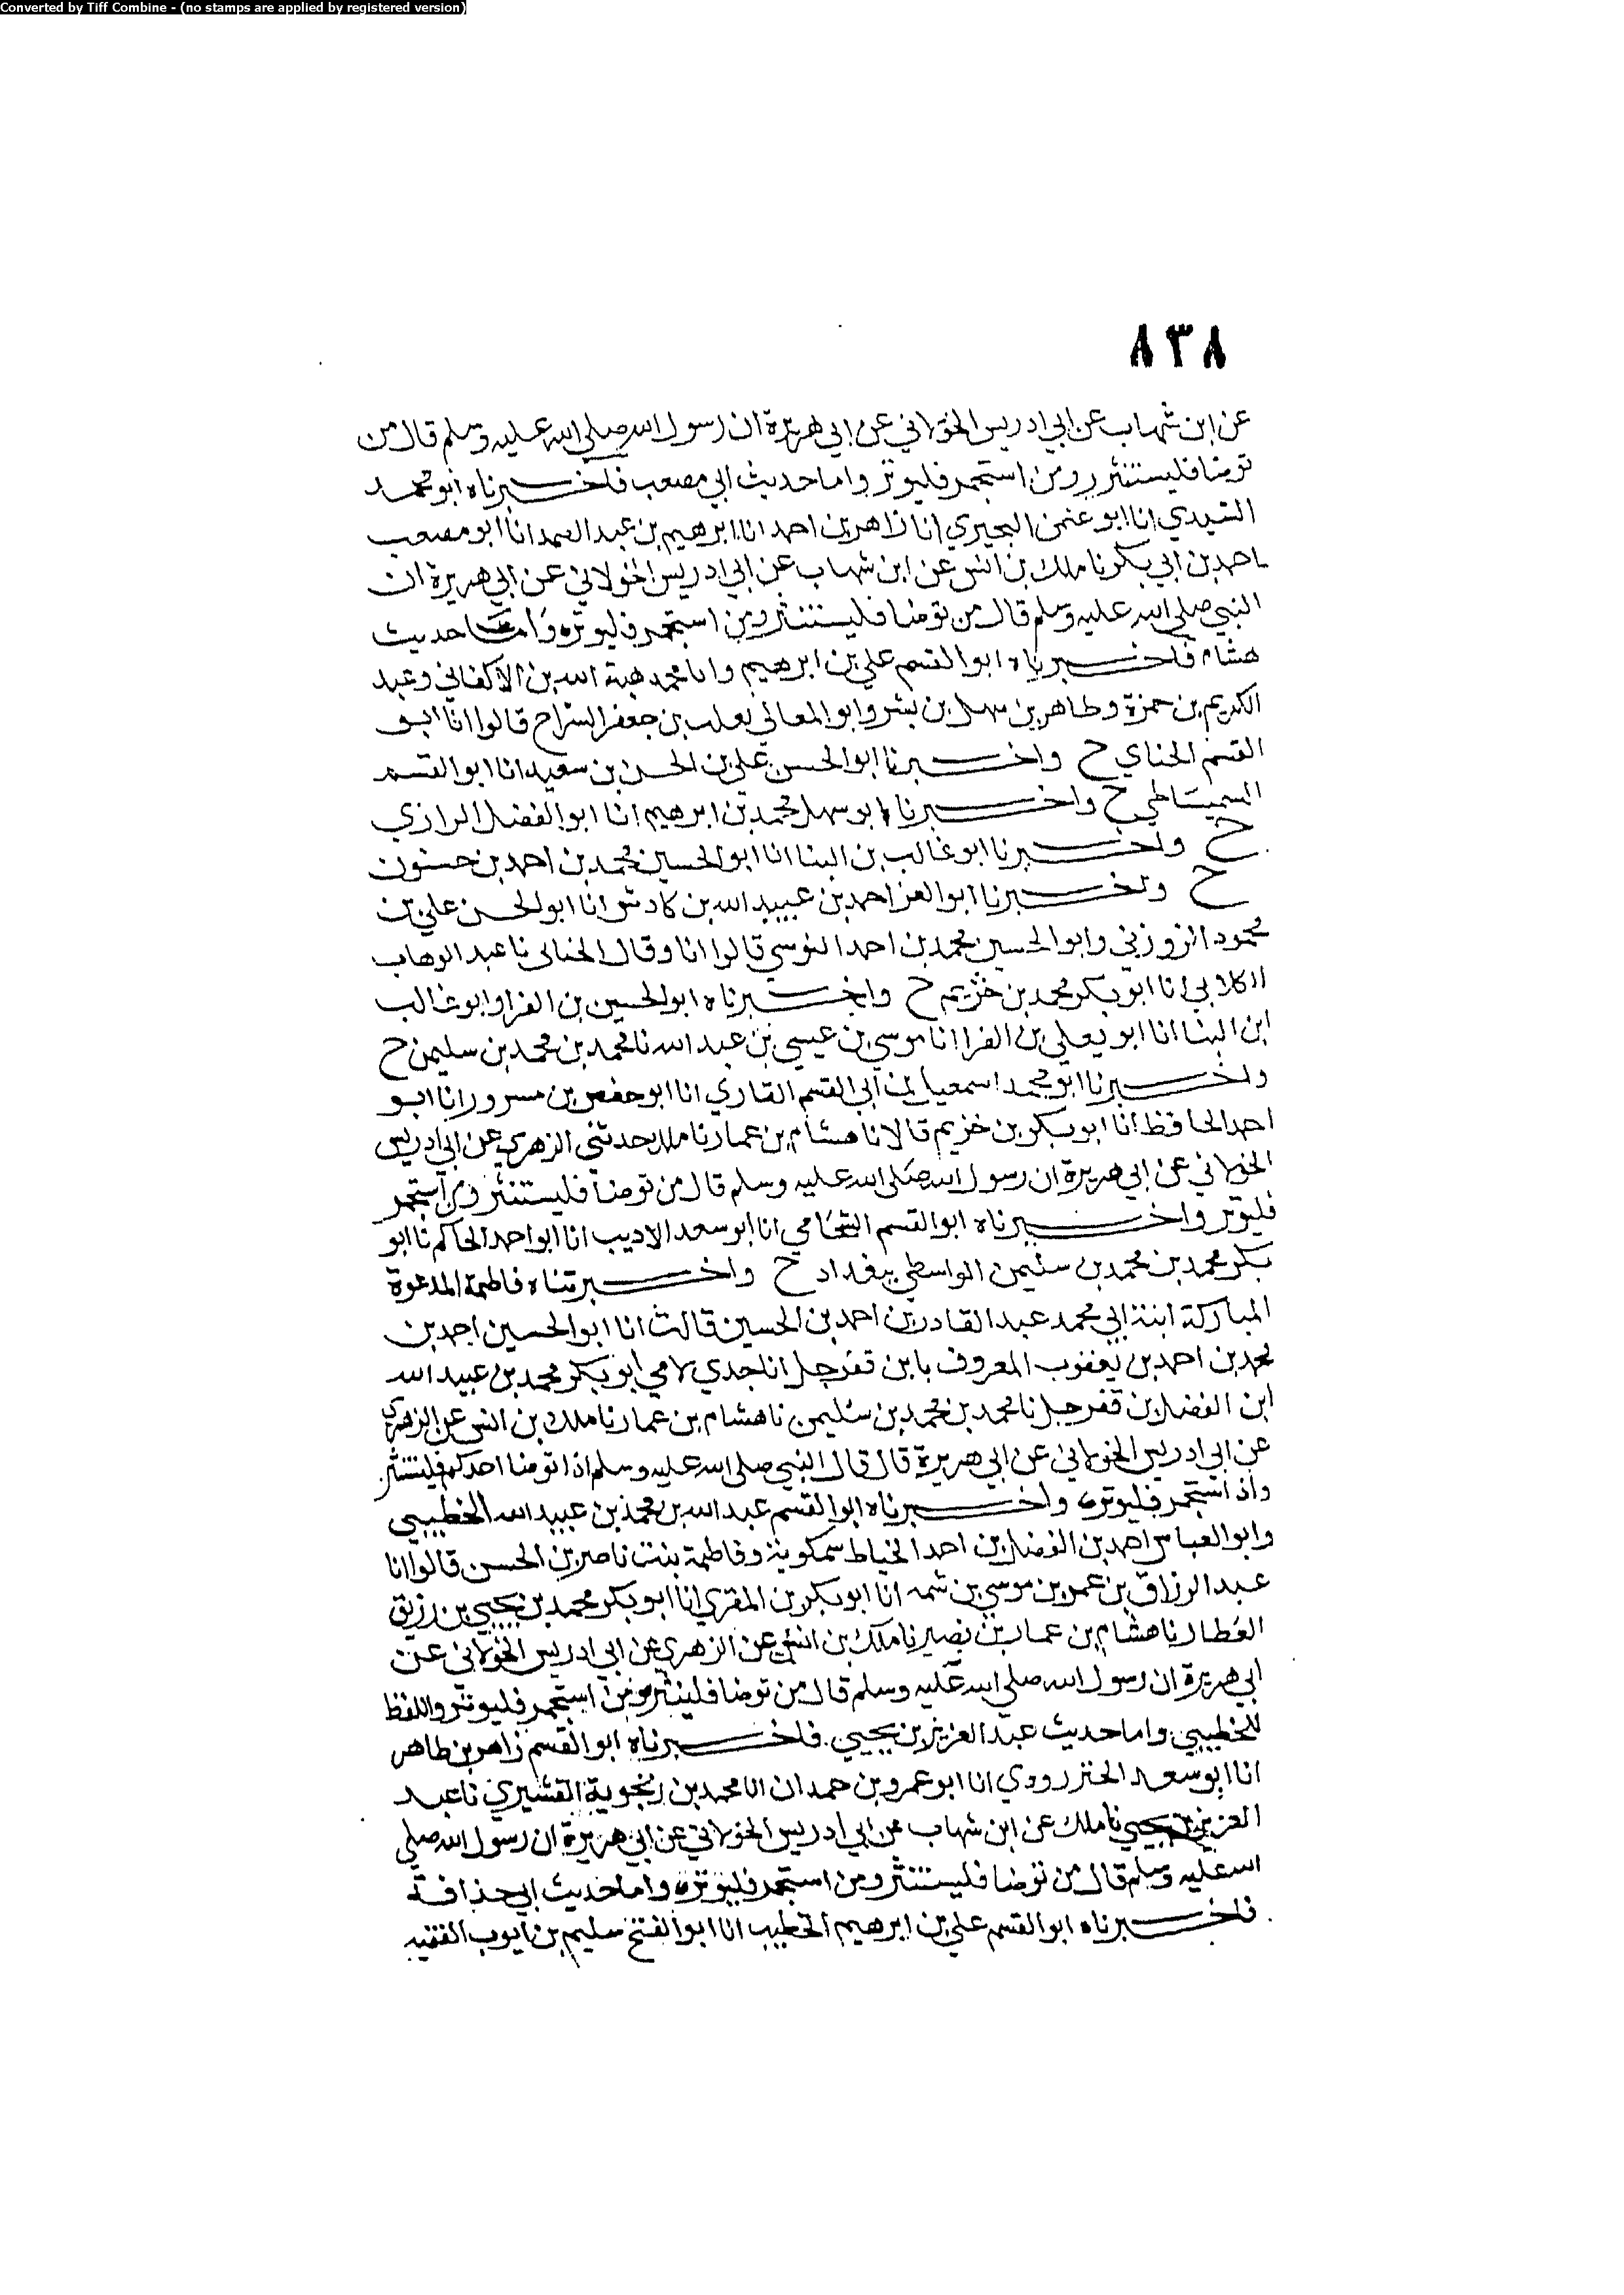 Converted by Tiff Combine - (no stamps are applied by registered version)
٨٣٨
عن ابن شهاب عن ابي ادريس الخولاني عن ابي هريرة ان رسول الله صلي الله عليه وسلم قال من
توضا فليستنثر ومن استجمر فليوتر واما حديث ابي مصعب فاخبرناه ابو محمد
السيدي انا ابو عثمن البحيري انا زاهر بن احمد انا ابرهيم بن عبد الصمد انا ابو مصعب
احمد بن ابي بكر نا ملك بن انس عن ابن شهاب عن ابي ادريس الخولاني عن ابي هريرة ان
النبي صلي الله عليه وسلم قال من توضا فليستنثر ومن استجمر فليوتر واما حديث
هشام فاخبرناه ابو القسم علي بن ابرهيم وانا محمد هبة الله بن الاكفاني وعبد
الكريم بن حمزة وطاهر بن سهل بن بشر وابو المعالي ثعلب بن جعفر السراج قالوا انا ابو
القسم الحناي ح واخبرنا ابو الحسن علي بن الحسن بن سعيد انا ابو القسم
السميساطي ح واخبرناه ابو سهل محمد بن ابرهيم انا ابو الفضل الرازي
ح واخبرنا ابو غالب بن البنا انا ابو الحسين محمد بن احمد بن حسنون
ح واخبرنا ابو العز احمد بن عبيد الله بن كادش انا ابو الحسن علي بن
محمود الزوزني وابو الحسين محمد بن احمد النرسي قالوا انا وقال الحنائي نا عبد الوهاب
الكلابي انا ابو بكر محمد بن خريم ح واخبرناه ابو الحسين بن الفرا وابو غالب
ابن البنا انا ابو يعلي بن الفرا انا موسي بن عيسي بن عبد الله نا محمد بن محمد بن سليمن ح
واخبرنا ابو محمد اسمعيل بن ابي القسم القاري انا ابو حفص بن مسرور انا ابو
احمد الحافظ انا ابو بكر بن خريم قالا نا هشام بن عمار نا ملك حدثني الزهري عن ابي ادريس
الخولاني عن ابي هريرة ان رسول الله صلي الله عليه وسلم قال من توضا فليستنثر ومن استجمر
فليوتر واخبرناه ابو القسم الشحامي انا ابو سعد الاديب انا ابو احمد الحاكم نا ابو
بكر محمد بن محمد بن سليمن الواسطي ببغداد ح واخبرتناه فاطمة المدعوة
المباركة ابنة ابي محمد عبد القادر بن احمد بن الحسين قالت انا ابو الحسين احمد بن
محمد بن احمد بن يعقوب المعروف بابن قفرجل انا جدي لامي ابو بكر محمد بن عبيد الله
ابن الفضل بن قفرجل نا محمد بن محمد بن سليمن نا هشام بن عمار نا ملك بن انس عن الزهري
عن ابي ادريس الخولاني عن ابي هريرة قال قال النبي صلي الله عليه وسلم اذا توضا احدكم فليستنثر
واذا استجمر فليوتر واخبرناه ابو القسم عبد الله بن محمد بن عبيد الله الخطيبي
وابو العباس احمد بن الفضل بن احمد الخياط سمكوية وفاطمة بنت ناصر بن الحسن قالوا انا
عبد الرزاق بن عمر بن موسي بن شمه انا ابو بكر بن المقري انا ابو بكر محمد بن يحيي بن رزيق
العطار نا هشام بن عمار بن نصير نا ملك بن انس عن الزهري عن ابي ادريس الخولاني عن
ابي هريرة ان رسول الله صلي الله عليه وسلم قال من توضا فلينثر ومن استجمر فليوتر واللفظ
للخطيبي واما حديث عبد العزيز بن يحيي فاخبرناه ابو القسم زاهر بن طاهر
انا ابو سعد الجنزرودي انا ابو عمرو بن حمدان انا محمد بن زنجوية القشيري نا عبد
العزيز بن يحيي نا ملك عن ابن شهاب عن ابي ادريس الخولاني عن ابي هريرة ان رسول الله صلي
الله عليه وسلم قال من توضا فليستنثر ومن استجمر فليوتر واما حديث ابي حذافة
فاخبرناه ابو القسم علي بن ابرهيم الخطيب انا ابو الفتح سليم بن ايوب الفقيه